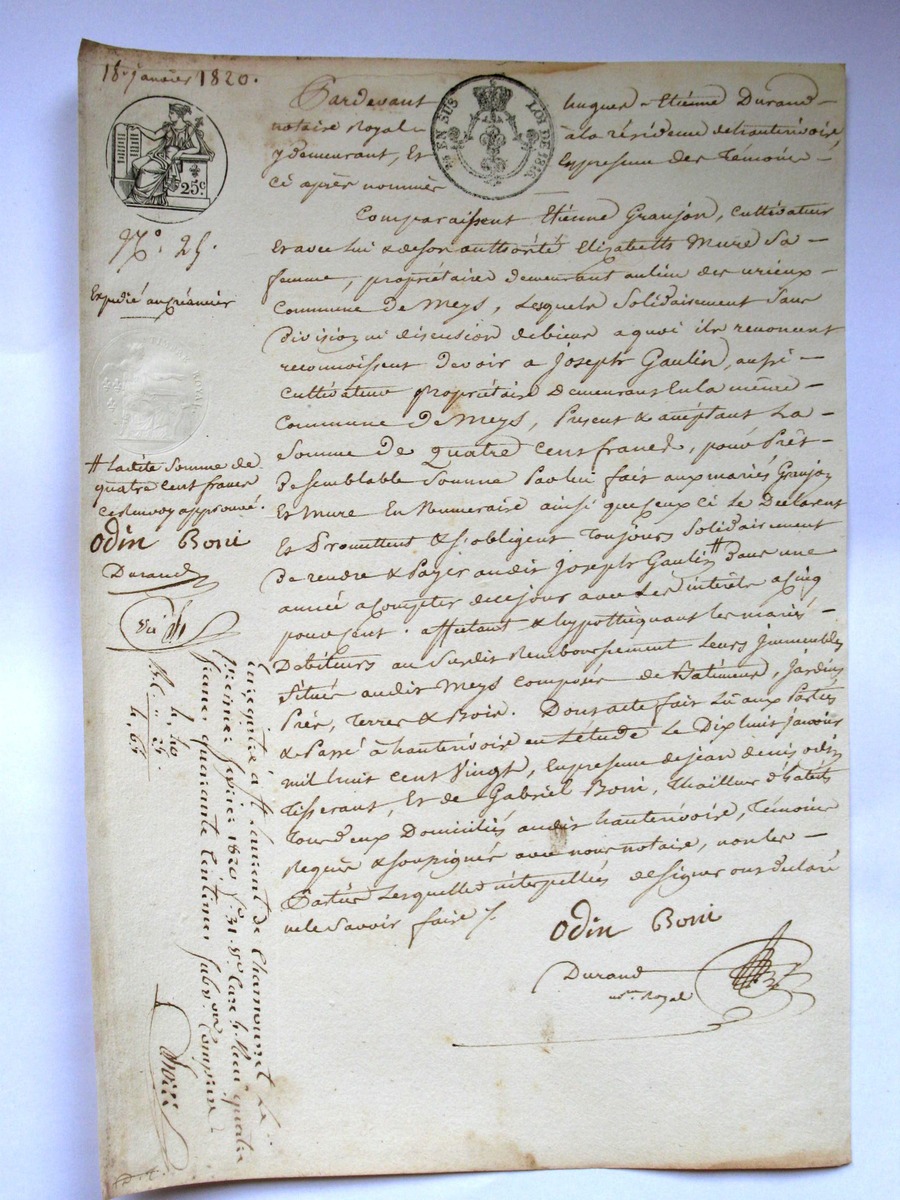 18. janvier 1820.
Pardevant hugues Etienne Durand
notaire Royal à la résidence de hauterivoire,
y demeurant, Et En presence des Témoins
ci après nommés
EN SUS
LOI DE 1816
25c
N.o 25.
Expedié au créancier
Comparaissent Etienne Granjon, cultivateur
Et avec lui & de son authorité Elizabeth Mure Sa
femme, propriétaires demeurant au lieu des
Commune de Meys, Lesquels Solidairement Sans
Division ni discusion de biens a quoi ils renoncent
reconnoissent Devoir a Joseph Gaulin, aussi
cultivateur propriétaire Demeurant En la même
Commune de Meys, Present & acceptant La
Somme De quatre cent francs, pour Prêt
De semblable Somme Par lui fait aux mariés Granjon
Et Mure En Numeraire ainsi que Ceux ci Le Declarent
Et Promettent & s'obligent Toujours Solidairement
De rendre & Payer audit Joseph Gaulin # Dans une
année a Compter de ce jour avec Les intérêts a Cinq
pour cent. affectant & hypothéquant les mariés
Debiteurs au Susdit Remboursement Leurs Immeubles
Situés audit Meys composés de Batiments, Jardins
Prés, Terres & Bois. Dont acte fait Lu aux Parties
& Passé à hauterivoire en L'étude Le Dix huit janvier
mil huit cent Vingt, En presence de jean denis odin
Tisserant, Et de Gabriel Boni, Thailleur d'habits
Tous deux Domiciliés audit hauterivoire, Témoins
Requis & Soussignés avec nous notaire, non les
Parties Lesquelles interpellées de signer ont declaré
ne le Savoir faire
Odin Boni
Durand
n.re Royal
# Ladite Somme de
quatre cent francs
ce renvoy approuvé.
Odin Boni
Durand
4, 40
" 25
4, 65
Enregistré à St Laurent de Chamousset le
janvier 1820 f.o 31. V.o Case 4. Recu quatre
francs quarante Centimes Subv.on Comprise